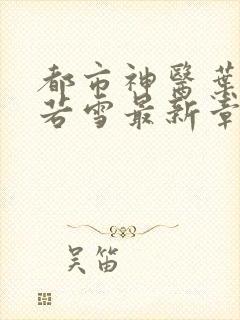 都市神醫葉
若雪最新章
吴笛